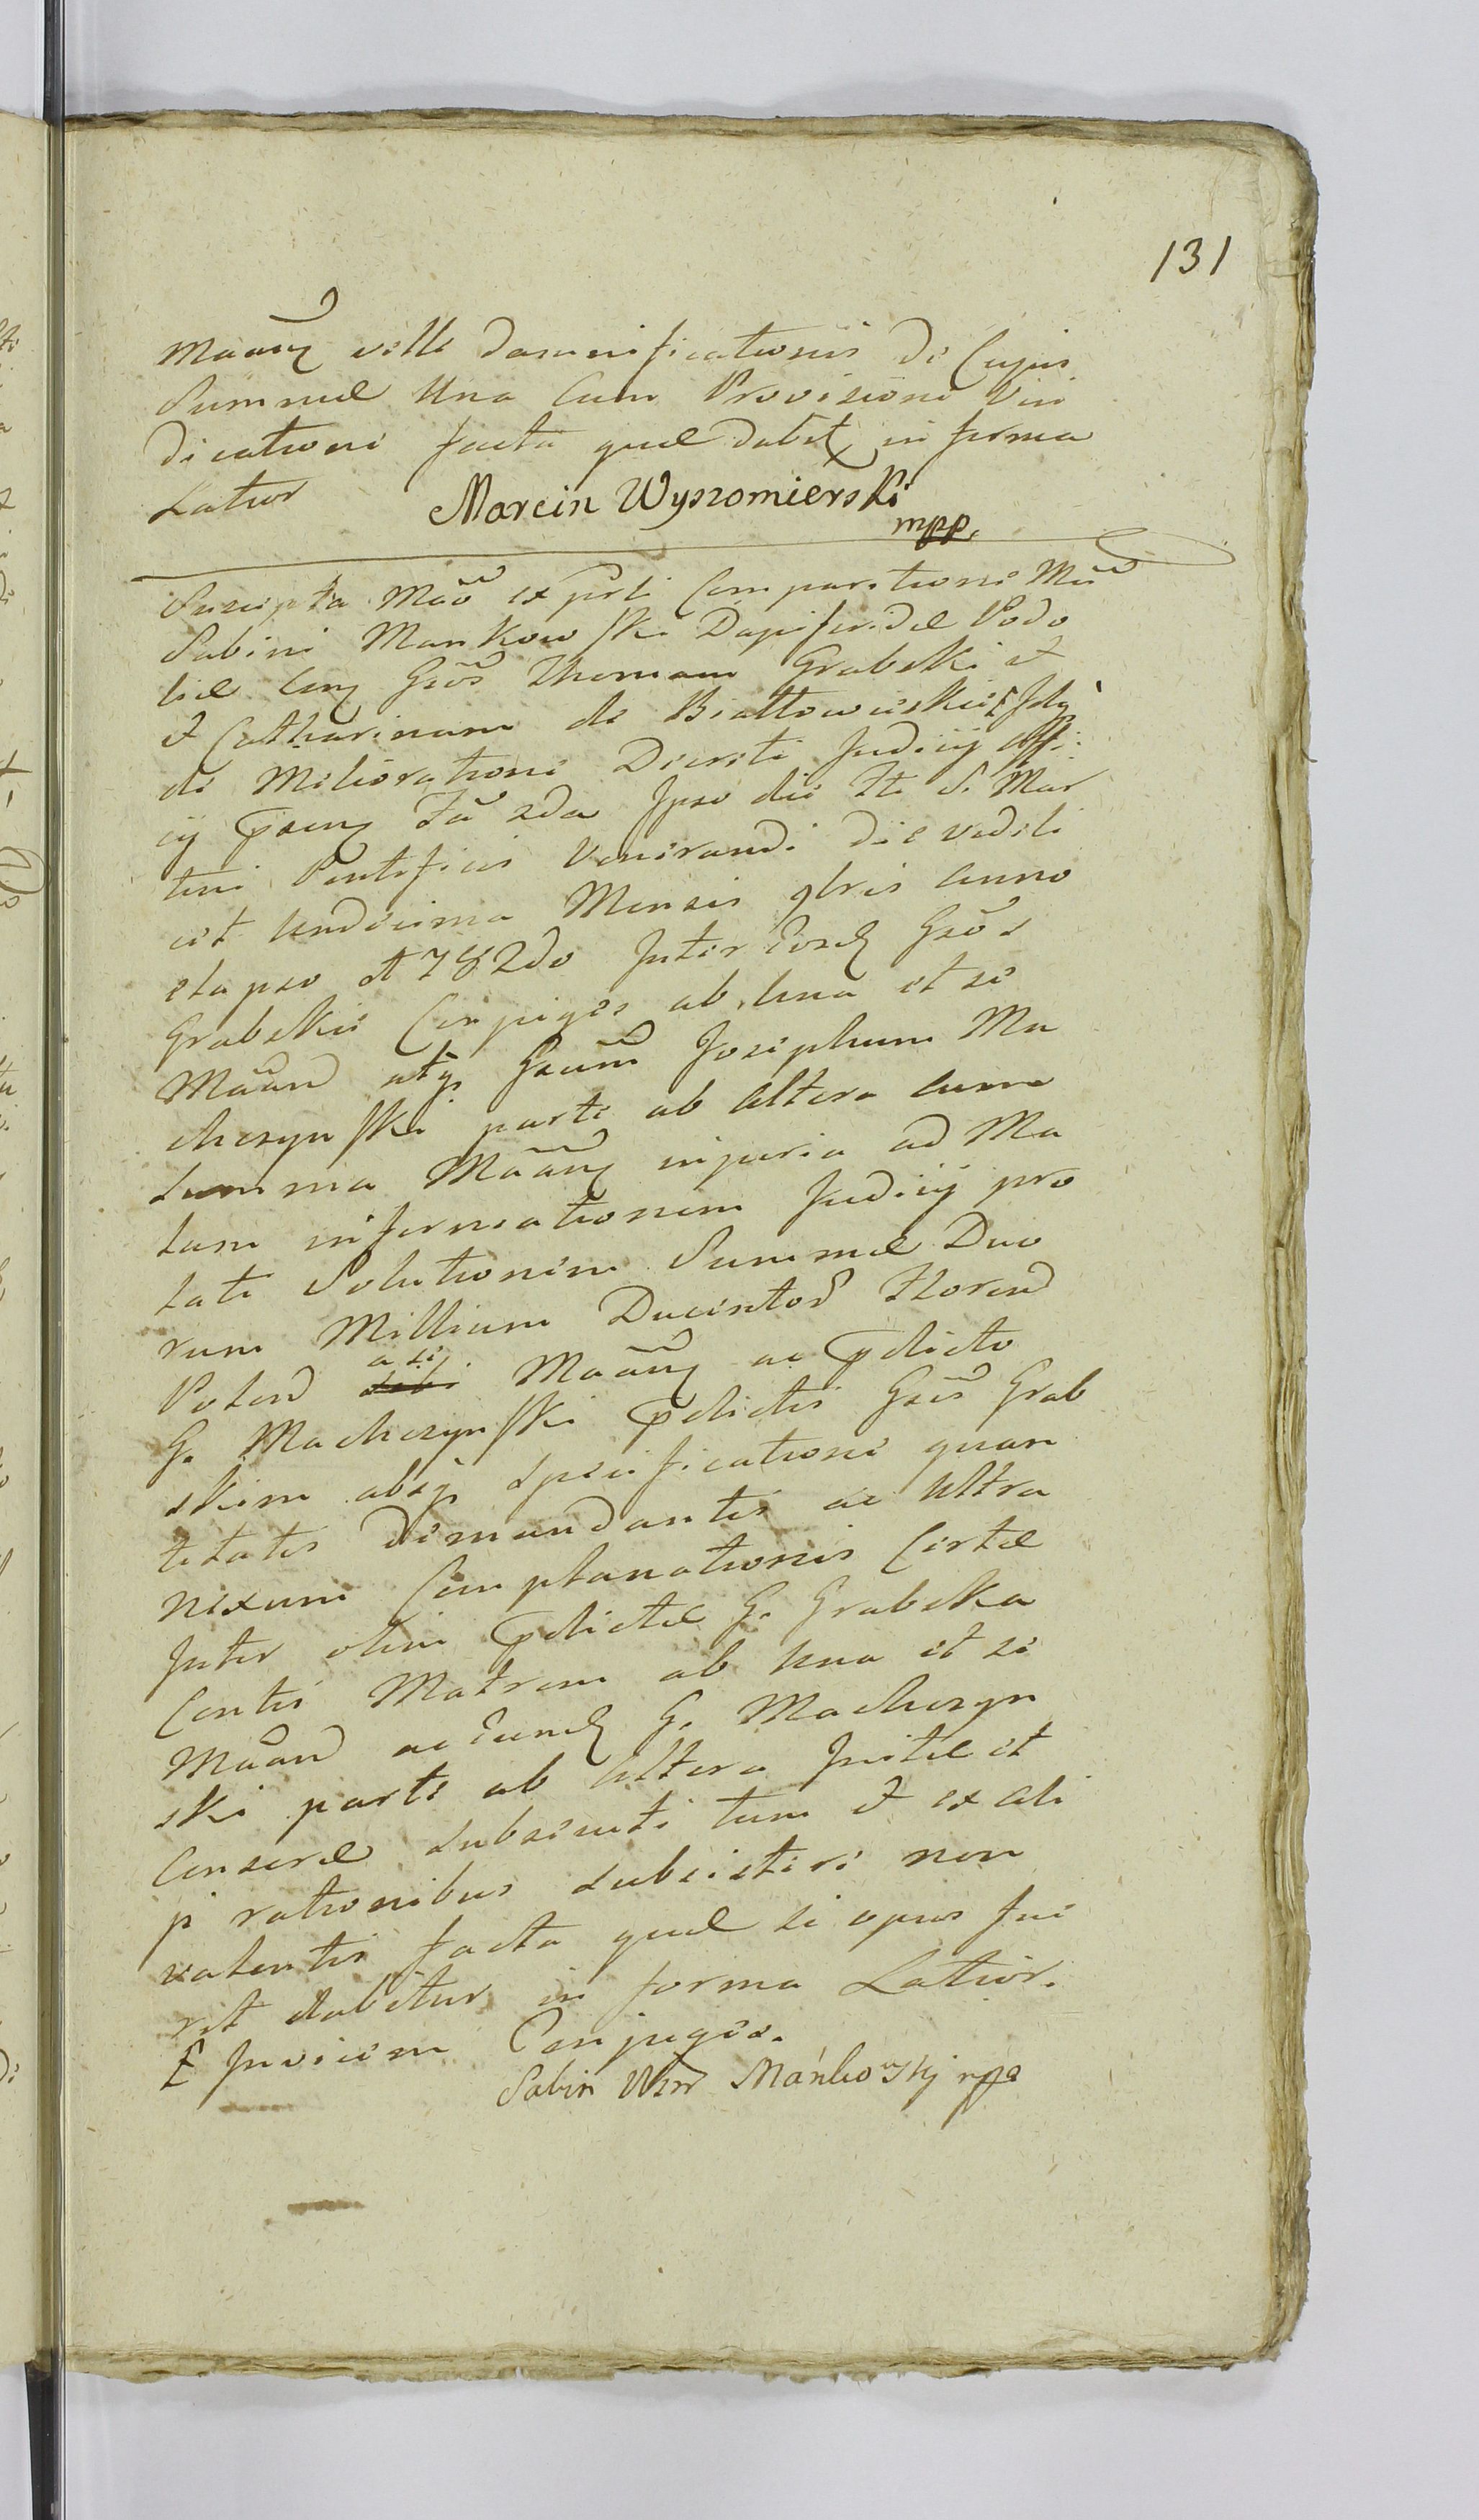 131
Maãnq velle damnificationis de Cujus
Summæ Una Cum Provisione Vin
dicatione facta quæ dabitq in forma
Latior Marcin Wyszomierski
mpp.
Suscepta Mão ex psti Comparitione Mci
Sabini Mankowski Dapiferidæ Podo
liæ Cnq Gsõs Thomam Grabski et
et Catharinam de Białłowieskie £ Idq
de Melioratione Decreti Judicij offi:
ij Ipso die Fti S. Mar
tini Pontificis Venerandi die videli
cet Undecima Mensis 9bris Anno
elapso 1782do Inter eosd Gsõs
Grabskie Conjuges ab Una et se
Maãnd atq Gsum Josephum Ma
chczynski parte ab Altera cum
summa Maãnq injuria ad Ma
lam informationem Judicij pro
lati Solutionem Summæ Duo
rum Millium Ducentor Floren
Polon a se Maãnq ac pdicto
G. Machczynski pdictis Gsis Grab
skim absq specificatione quan
titatis demandantis ac Ultra
nexum Complanationis Certæ
Inter olim pdictæ G. Grabska
Contis Matrem ab Una et se
Maãnd ac eund G. Machczyn
ski parte ab Altera Initæ et
Conseræ subsecuti tum et ex ali
js rationibus subsistere non
valentis facta quæ si opus fue
rit dabitur in forma Latior.
£ Invicem Conjuges.
Sabin Mańkowskj